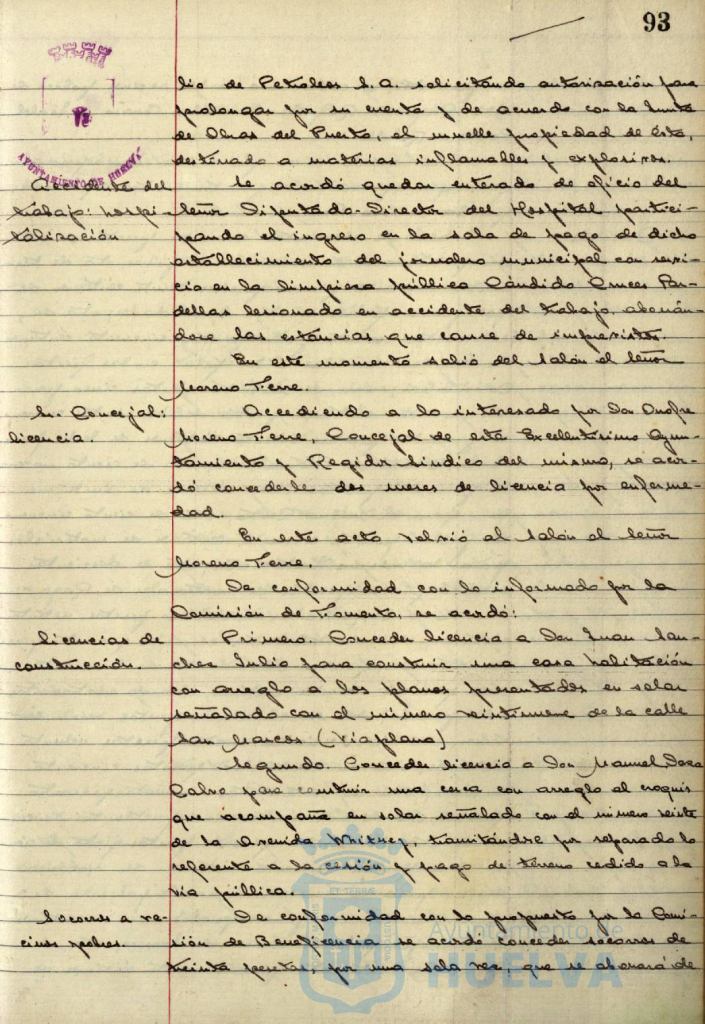 93
lio de Petroleos S.A. solicitando autorización para
prolongar por su cuenta y de acuerdo con la Junta
de Obras del Puerto, el muelle propiedad de ésta,
destinado a materias inflamables y explosivos.
AYUNTAMIENTO DE HUELVA
Accidente del
trabajo: hospi-
talización
Se acordó quedar enterado de oficio del
Señor Diputado-Director del Hospital partici-
pando el ingreso en la sala de pago de dicho
establecimiento del jornalero municipal con servi-
cio en la limpieza pública Cándido Cruces
lesionado en accidente del trabajo, abonán-
dose las estancias que cause de imprevistos.
En este momento salió del salón el Señor
Moreno Ferre.
Sr. Concejal:
licencia.
Accediendo a lo interesado por Don Onofre
Moreno Ferre, Concejal de este Excelentísimo Ayun-
tamiento y Regidor Síndico del mismo, se acor-
dó concederle dos meses de licencia por enferme-
dad.
En este acto volvió al salón el Señor
Moreno Ferre.
De conformidad con lo informado por la
Comisión de Fomento, se acordó:
Licencias de
construcción.
Primero. Conceder licencia a Don Juan Sán-
chez Julio para construir una casa habitación
con arreglo a los planos presentados en solar
señalado con el número veintinueve de la calle
San Marcos (Viaplana)
Segundo. Conceder licencia a Don Manuel Daza
Calvo para construir una cerca con arreglo al croquis
que acompaña en solar señalado con el número veinte
de la Avenida Whitney, tramitándose por separado lo
referente a la cesión y pago de terreno cedido a la
vía pública.
Socorros a ve-
cinos pobres.
De conformidad con lo propuesto por la Comi-
sión de Beneficencia se acordó conceder socorros de
treinta pesetas, por una sola vez, que se abonará de
Ayuntamiento de
HUELVA